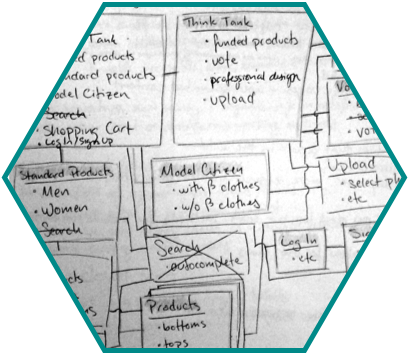 Tank
products
standard products
Model Citizen
Search
Shopping Cart
Log In/Sign Up
Think Tank
funded products
vote
professional design
upload
Standard Products
Men
Women
Search
Model Citizen
with β clothes
w/o β clothes
Upload
select
etc
Search
autocomplete
Log In
etc
Products
bottoms
tops